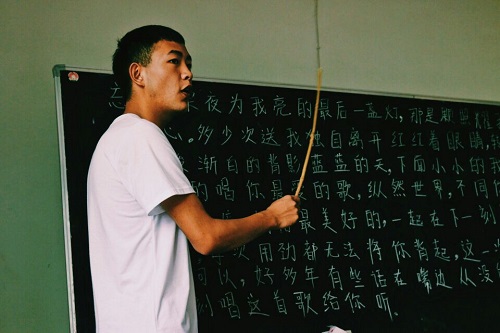 夜为我亮的最后一盏灯，那是
心。多少次送我独自离开红红着眼睛，
渐白的背影蓝蓝的天，下面小小的我
的唱你是我的歌，纵然世界，不同
最美好的，一起在下一
次用劲都无法将你背起，这一
以，好多年有些话在嘴边从没
唱这首歌给你听。